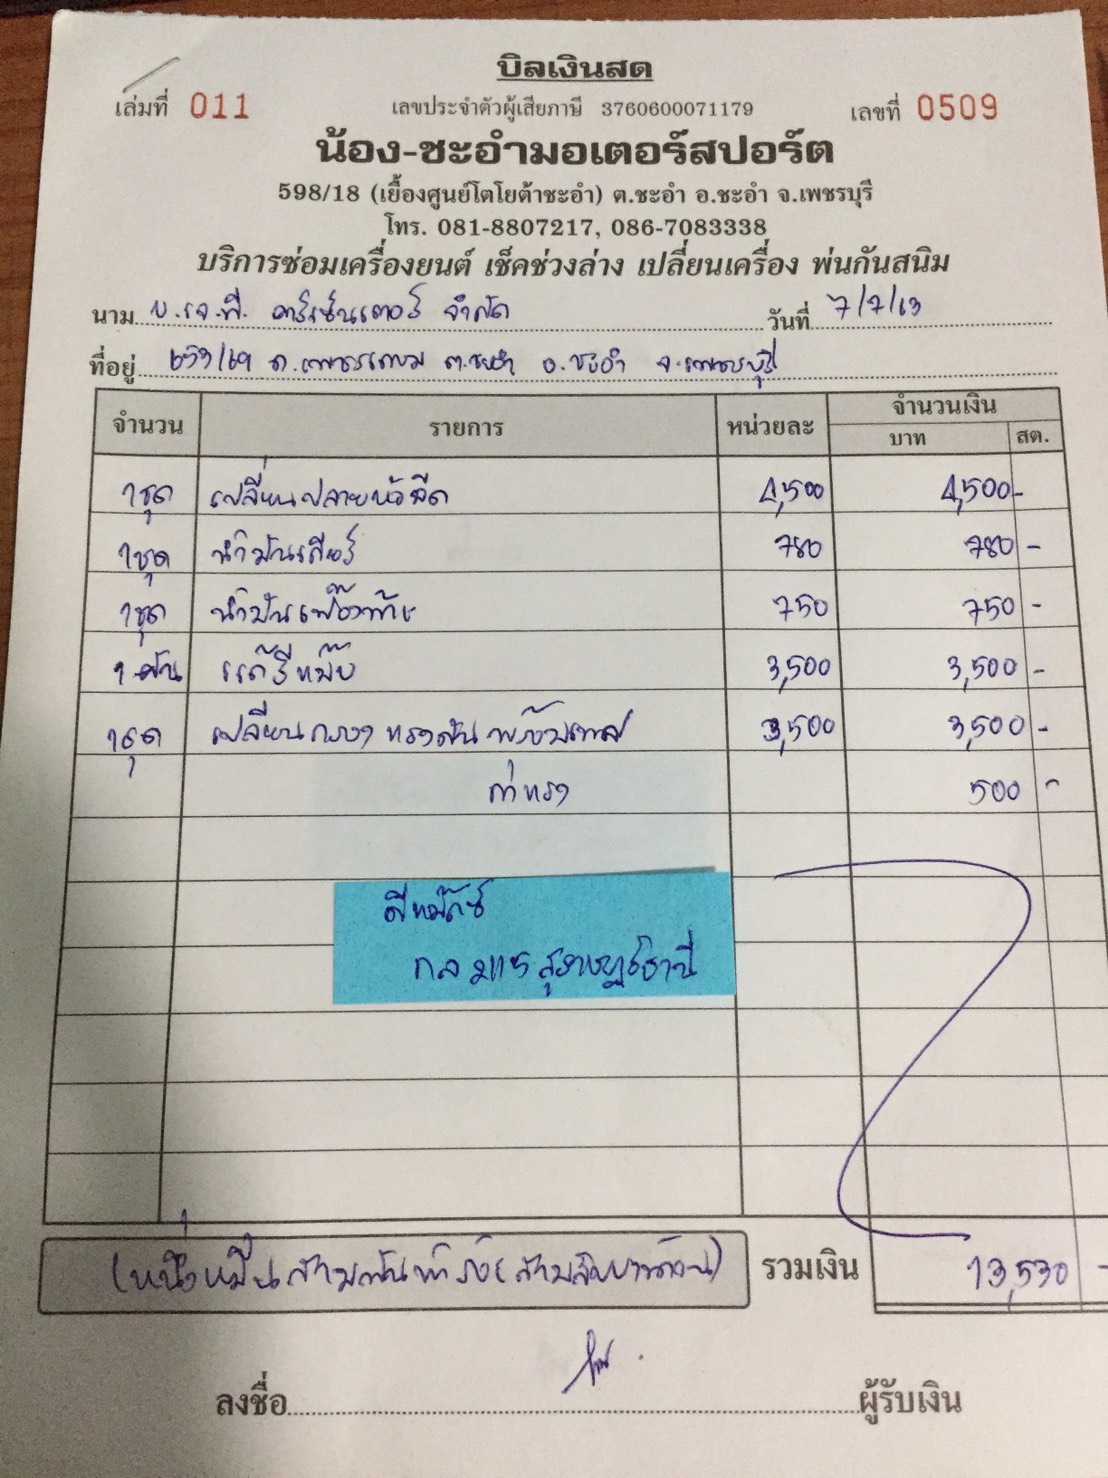 บิลเงินสด
เล่มที่ 011
เลขประจำตัวผู้เสียภาษี 3760600071179
เลขที่ 0509
น้อง-ชะอำมอเตอร์สปอร์ต
598/18 (เยื้องศูนย์โตโยต้าชะอำ) ต.ชะอำ อ.ชะอำ จ.เพชรบุรี
โทร. 081-8807217, 086-7083338
บริการซ่อมเครื่องยนต์ เช็คช่วงล่าง เปลี่ยนเครื่อง พ่นกันสนิม
นาม บ.เจ.พี. คาร์เซ็นเตอร์ จำกัด วันที่ 7/7/63
ที่อยู่ ถ.เพชรเกษม ต.ชะอำ อ.ชะอำ จ.เพชรบุรี
จำนวน รายการ หน่วยละ จำนวนเงิน
บาท สต.
1 ชุด เปลี่ยนปลายหัวฉีด 4,500 4,500 -
1 ชุด น้ำมันเกียร์ 780 780 -
1 ชุด น้ำมันเฟืองท้าย 750 750 -
1 คัน 3,500 3,500 -
1 ชุด เปลี่ยนกรอง 3,500 3,500 -
ค่าแรง 500 -
ดีแม็กซ์
สุราษฎร์ธานี
(หนึ่งหมื่นสามพันห้าร้อยสามสิบบาทถ้วน) รวมเงิน 13,530 -
ลงชื่อ ผู้รับเงิน